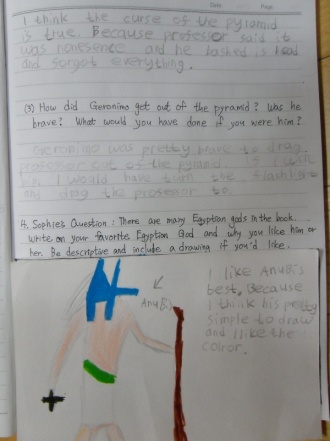 Date Page
I think the curse of the pyramid
is true. Because professor said it
was nontsence and he lashed is head
and forgot everything.
(3) How did Geronimo get out of the pyramid? Was he
brave? What would you have done if you were him?
Geronimo was pretty brave to drag
professor out of the pyramid. If I wer
him I would have turn the flashlight
and drag the professor to
4. Sophie's Question: There are many Egyptian gods in the book.
Write on your favorite Egyption God and why you like him or
her. Be descriptive and include a drawing if you'd like.
AnuBis
I like AnuBis
best, Because
I think his pretty
simple to draw
and I like the
color.